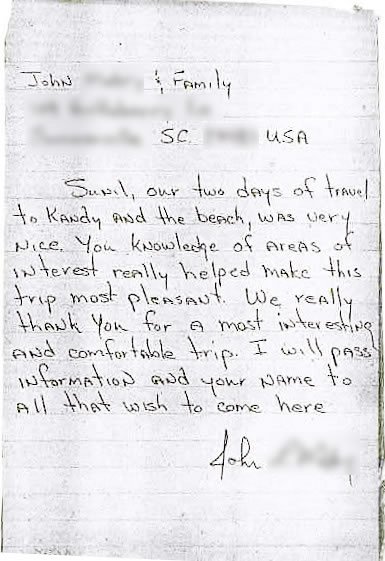 John & Family
SC. USA
Sunil, our two days of travel
to Kandy and the beach, was very
nice. You knowledge of areas of
interest really helped make this
trip most pleasant. We really
thank you for a most interesting
and comfortable trip. I will pass
information and your name to
all that wish to come here
John